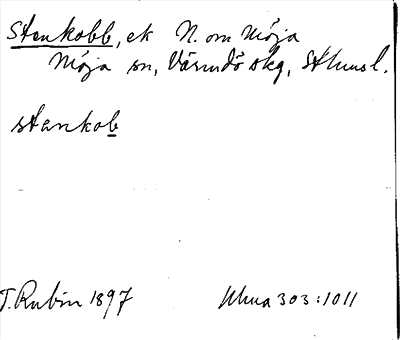 Stenkobb, ek N. om Möja
Möja sn, Värmdö skg, Sthmsl.
stenkob
T. Rubin 1897 Ulma 303:1011